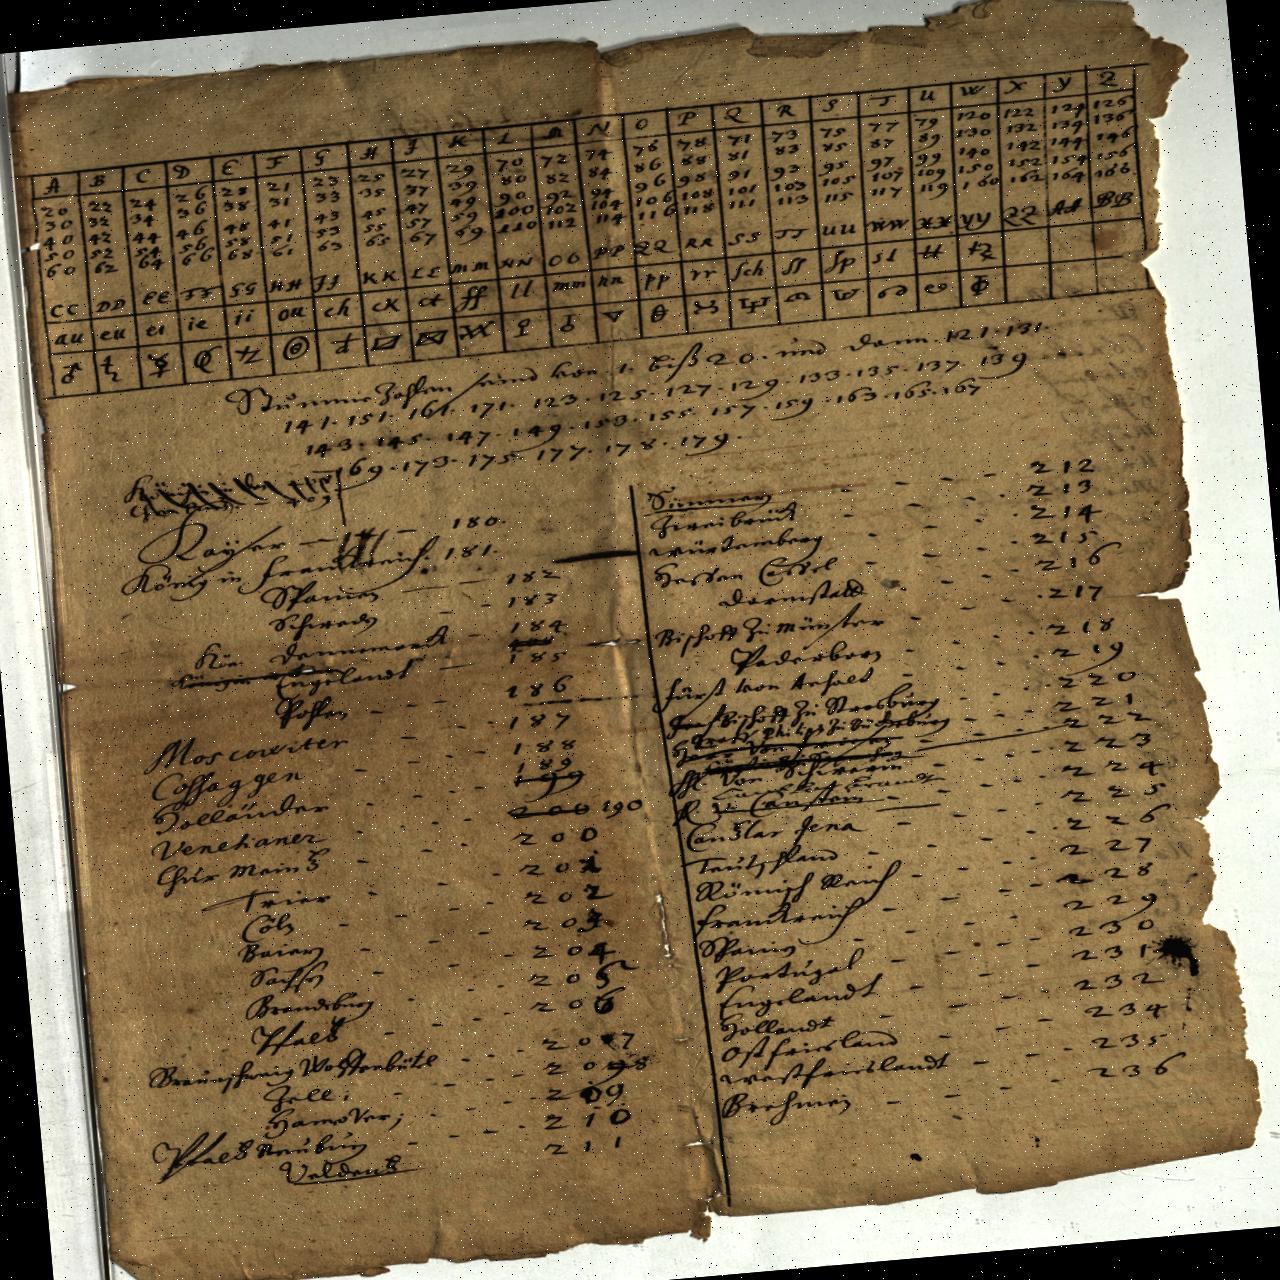 A B C D E F G H I K L M N O P Q R S T U W X Y Z
20 22 24 26 28 21 23 25 27 29 70 72 74 76 78 71 73 75 77 79 120 122 124 126
30 32 34 36 38 31 33 35 37 39 80 82 84 86 88 81 83 85 87 89 130 132 134 136
40 42 44 46 48 41 43 45 47 49 90 92 94 96 98 91 93 95 97 99 140 142 144 146
50 52 54 56 58 51 53 55 57 59 100 102 104 106 108 101 103 105 107 109 150 152 154 156
60 62 64 66 68 61 63 65 67 69 110 112 114 116 118 111 113 115 117 119 160 162 164 166
CC DD EE FF GG HH II KK LL mm NN OO PP QQ RR SS TT UU WW XX YY ZZ AA BB
au eu ei ie ii ou ch ck ct ff ll mm nn pp rr sch ss sp st tt tz
Stumme Zahlen seind von 1. biß 20. und dann. 121. 131.
141. 151. 161. 171. 123. 125. 127. 129. 133. 135. 137. 139
143. 145. 147. 149. 153. 155. 157. 159. 163. 165. 167
169. 173. 175. 177. 178. 179.
Kayser 180.
König in Franckreich. 181.
Spanien 182
Schweden 183
Kön. Dennemarck 184
Engelandt 185
Pohlen 186
Moscowiter 187
Cossaggen 188
Holländer 189
Venetianer 200 190
Chur Maintz 200
Trier 201
Cöln 202
Baiern 203
Sachsen 204
Brandeburg 205
Pfaltz 206
Braunschweig Wolffenbütel 207
Zell; 208
Hannover; 209
Pfaltz Neuburg 210
Veldentz 211
Simmern 212
Zweibrück 213
Würtemberg 214
Hessen Cassel 215
Darmstadt 216
Bischoff zu Münster 217
Paderborn 218
Fürst von Anhalt 219
Bischoff zu Strasburg 220
221
Von Schwerin 222
Canstein 223
Cantzlar Jena 224
Teutschland 225
Römisch Reich 226
Franckreich 227
Spanien 228
Portugal 229
Engelandt 230
Hollandt 231
Ostfriesland 232
Westfrieslandt 234
Brehmen 235
236